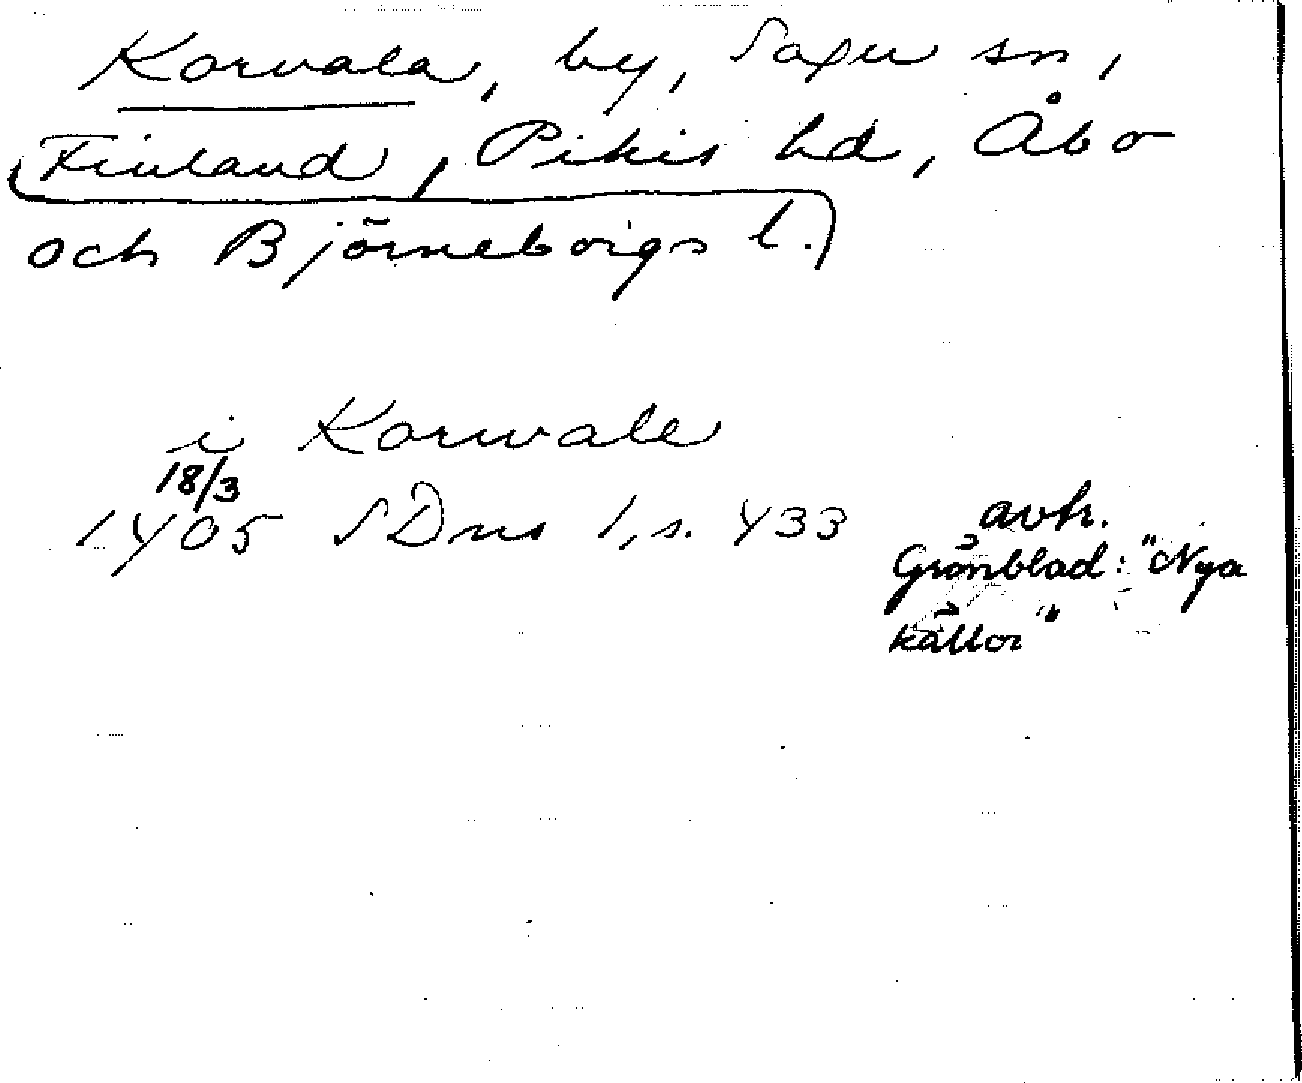 Korvala, by, Sagu sn,
Finland, Pikis hd, Åbo
och Björneborgs l.
i Korwale
18/3
1405 SDns 1, s. 433
avh.
Grönblad: "Nya
källor"